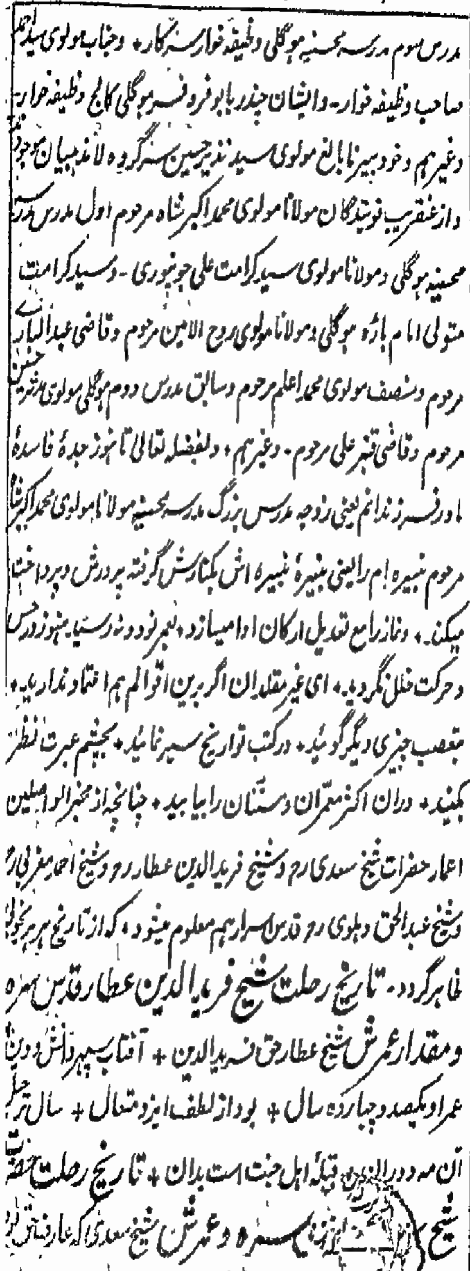 مدرس سوم مدرسہ محسنیہ ہوگلی وظیفہ خوار سرکار + وجناب مولوی سید احمد
صاحب وظیفہ خوار - وایشان چندر بابو فروفسر ہوگلی کالج وظیفہ خوار -
وغیرہم وخود پیر نابالغ مولوی سید نذیر حسین سرگروہ لامذہبیان موجود
واز عنقریب فوتیدگان مولانا مولوی محمد اکبر شاہ مرحوم اول مدرس مدرسہ
محسنیہ ہوگلی ومولانا مولوی سید کرامت علی جونپوری - وسید کرامت
متولی امام باڑہ ہوگلی ومولانا مولوی روح الامین مرحوم وقاضی عبدالباری
مرحوم ومنصف مولوی محمد اعلم مرحوم وسابق مدرس دوم ہوگلی مولوی
مرحوم وقاضی قنبر علی مرحوم - وغیرہم + وبفضلہ تعالی تا ہنوز جدۂ فاسدۂ
مادر فرزندانم یعنی زوجہ مدرس بزرگ مدرسہ محسنیہ مولانا مولوی محمد اکبر شاہ
مرحوم نبیرہ ام را یعنی نبیرۂ نبیرہ اش بکنارش گرفتہ پرورش وپرداخت
میکند + ونماز را مع تعدیل ارکان ادا میسازد + بعمر نود ونہ رسید ہنوز در حس
وحرکت خلل نگردید + ای غیر مقلدان اگر برین اقوالم ہم اعتماد ندارید +
بتعصب چیزی دیگر گوئید + در کتب تواریخ سیر نمائید + بچشم عبرت نظر
بکنید + دران اکثر معمران ومسنان را بیابید + چنانچہ از مخبر الواصلین
اعمار حضرات شیخ سعدی رح وشیخ فرید الدین عطار رح وشیخ احمد مغربی رح
وشیخ عبدالحق دہلوی رح قدس اسرارہم معلوم میشود + کہ از تاریخ ہر ہر بخوبی
ظاہر گردد - تاریخ رحلت شیخ فرید الدین عطار قدس سرہ
ومقدار عمرش شیخ عطار حق فرید الدین + آفتاب سپہر دانش ودین
عمر او یکصد وچہاردہ سال + بود از لطف ایزد متعال + سال ترحیل
آن مہ دوران + قبلۂ اہل جنت است بدان + تاریخ رحلت حضرت
شیخ سرہ وعمرش شیخ سعدی کہ عارف حق بود